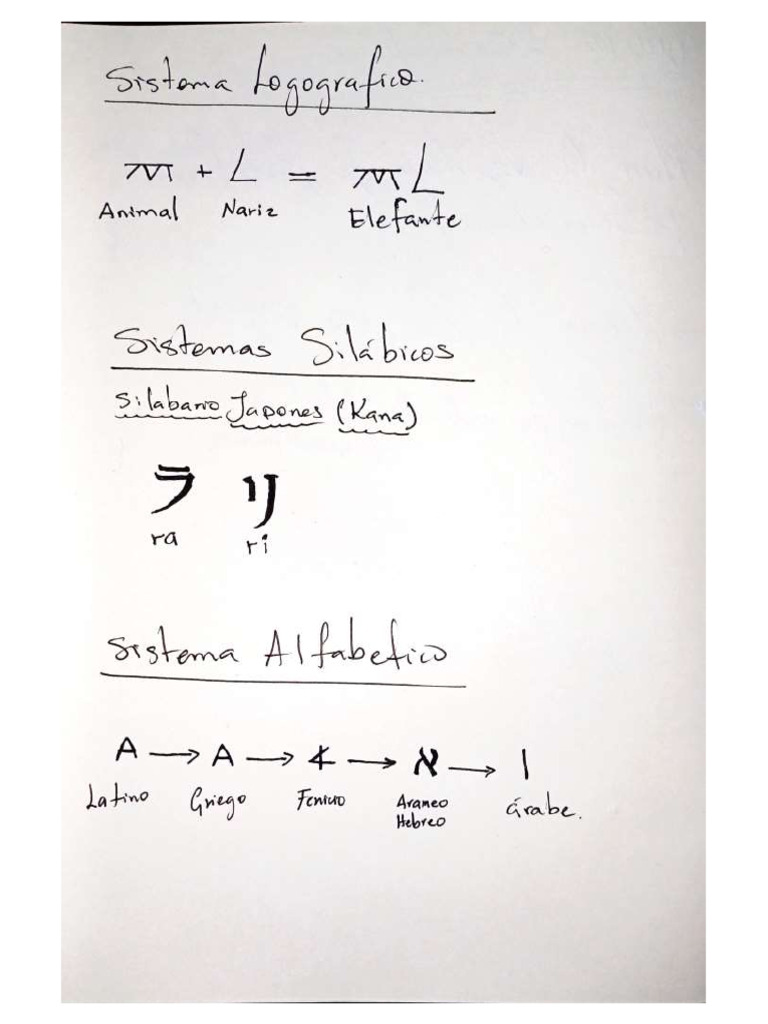 Sistema Logografico.
+ L =
Animal Nariz Elefante
Sistemas Silábicos
Silabario Japones (Kana)
ラ リ
ra ri
Sistema Alfabetico
A → A → 𐤀 → א → ا
Latino Griego Fenicio Arameo Hebreo árabe.